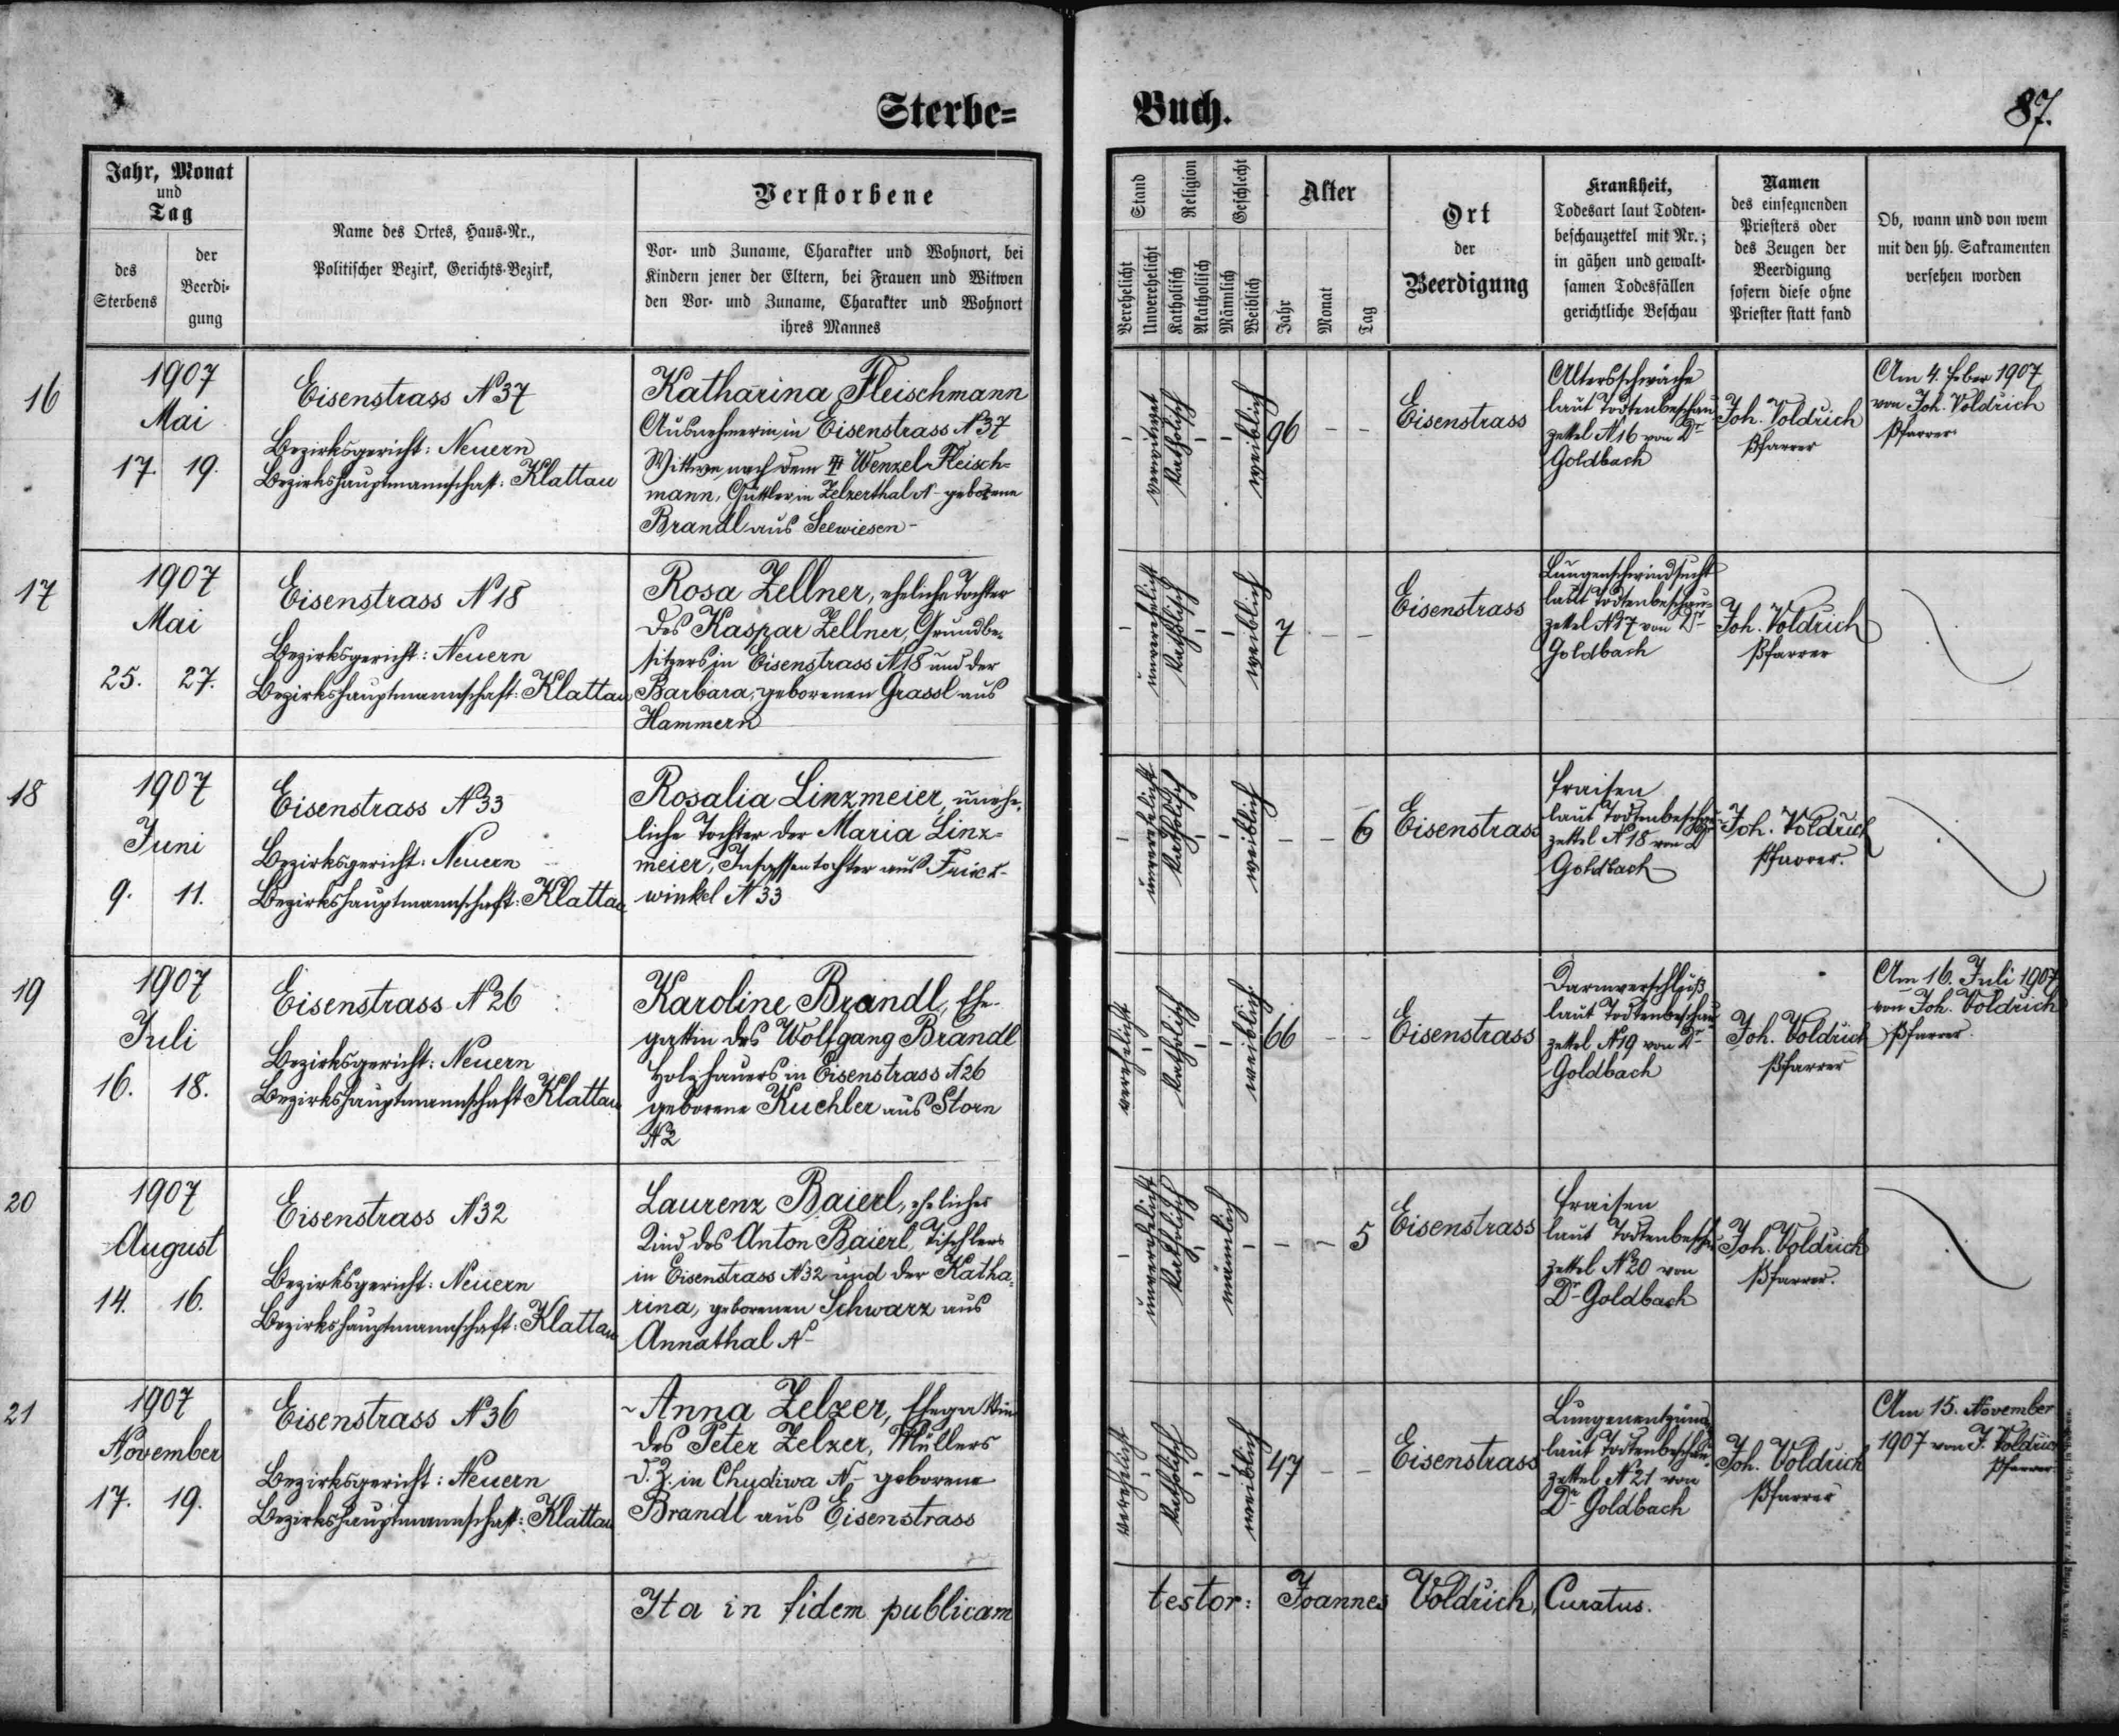 Sterbe= Buch.
87.
Jahr, Monat
und
Tag
des
Sterbens
der
Beerdi-
gung
Name des Ortes, Haus-Nr.,
Politischer Bezirk, Gerichts-Bezirk,
Verstorbene
Vor- und Zuname, Charakter und Wohnort, bei
Kindern jener der Eltern, bei Frauen und Witwen
den Vor- und Zuname, Charakter und Wohnort
ihres Mannes
Stand
Religion
Geschlecht
Verehelicht
Unverehelicht
Katholisch
Akatholisch
Männlich
Weiblich
Alter
Jahr
Monat
Tag
Ort
der
Beerdigung
Krankheit,
Todesart laut Todten-
beschauzettel mit Nr.;
in gähen und gewalt-
samen Todesfällen
gerichtliche Beschau
Namen
des einsegnenden
Priesters oder
des Zeugen der
Beerdigung
sofern diese ohne
Priester statt fand
Ob, wann und von wem
mit den hh. Sakramenten
versehen worden
16
1907
Mai
17. 19.
Eisenstrass N 37
Bezirksgericht: Neuern
Bezirkshauptmannschaft: Klattau
Katharina Fleischmann
Ausnehmerin in Eisenstrass N 37
Wittwe nach dem Wenzel Fleisch=
mann, Gütler in Zelzerthal N - geborene
Brandl aus Seewiesen -
verwitwet
katholisch
weiblich
96 - -
Eisenstrass
Altersschwäche
laut Todtenbeschau
zettel N 16 von Dr
Goldbach
Joh. Voldrich
Pfarrer
Am 4. feber 1907
von Joh. Voldrich
Pfarrer
17
1907
Mai
25. 27.
Eisenstrass N 18
Bezirksgericht: Neuern
Bezirkshauptmannschaft: Klattau
Rosa Zellner, eheliche Tochter
des Kaspar Zellner, Grundbe-
sitzers in Eisenstrass N 18 und der
Barbara, geborenen Grassl aus
Hammern
unverehelicht
katholisch
weiblich
7 - -
Eisenstrass
Lungenschwindsucht
laut Todtenbeschau=
zettel N 17 von Dr
Goldbach
Joh. Voldrich
Pfarrer
18
1907
Juni
9. 11.
Eisenstrass N 33
Bezirksgericht: Neuern
Bezirkshauptmannschaft: Klattau
Rosalia Linzmeier, unehe-
liche Tochter der Maria Linz=
meier, Insassentochter aus
winkel N 33
unverehelicht
katholisch
weiblich
- - 6
Eisenstrass
fraisen
laut Todtenbeschau-
zettel N 18 von Dr
Goldbach
Joh. Voldrich
Pfarrer.
19
1907
Juli
16. 18.
Eisenstrass N 26
Bezirksgericht: Neuern
Bezirkshauptmannschaft Klattau
Karoline Brandl, Ehe-
gattin des Wolfgang Brandl
Holzhauers in Eisenstrass N 26
geborene Kuchler aus Storn
N 2
verehelicht
katholisch
weiblich
66 - -
Eisenstrass
Darmverschluß
laut Todtenbeschau
zettel N 19 von Dr
Goldbach
Joh. Voldrich
Pfarrer
Am 16. Juli 1907
von Joh. Voldrich
Pfarrer.
20
1907
August
14. 16.
Eisenstrass N 32
Bezirksgericht: Neuern
Bezirkshauptmannschaft: Klattau
Laurenz Baierl, eheliches
Kind des Anton Baierl, Tischlers
in Eisenstrass N 32 und der Katha=
rina, geborenen Schwarz aus
Annathal N -
unverehelicht
katholisch
männlich
- - 5
Eisenstrass
fraisen
laut Todtenbeschau
zettel N 20 von
Dr Goldbach
Joh. Voldrich
Pfarrer.
21
1907
November
17. 19.
Eisenstrass N 36
Bezirksgericht: Neuern
Bezirkshauptmannschaft: Klattau
Anna Zelzer, Ehegattin
des Peter Zelzer, Müllers
d. Z. in Chudiwa N - geborene
Brandl aus Eisenstrass
verehelicht
katholisch
weiblich
47 - -
Eisenstrass
Lungenentzündg
laut Todtenbeschau-
zettel N 21 von
Dr Goldbach
Joh. Voldrich
Pfarrer
Am 15. November
1907 von J. Voldrich
Pfarrer
Ita in fidem publicam testor: Joannes Voldrich, Curatus.